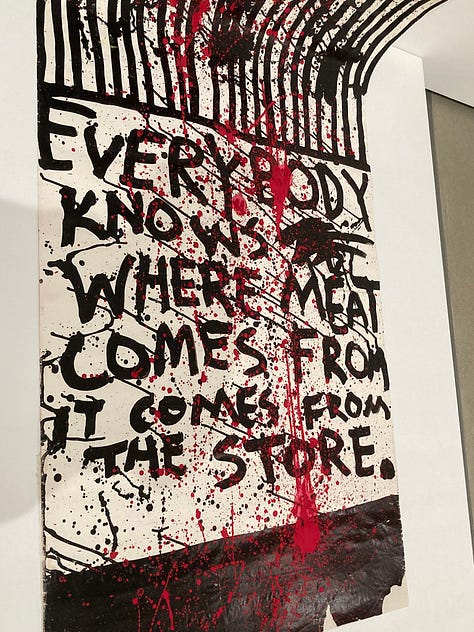 EVERYBODY
KNOWS
WHERE MEAT
COMES FROM
IT COMES FROM
THE STORE.